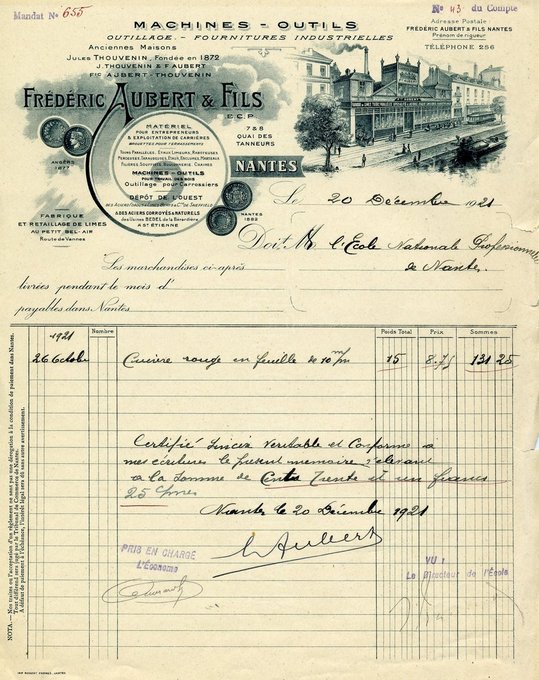 Mandat No 655
No 43 du Compte
MACHINES - OUTILS
OUTILLAGE. - FOURNITURES INDUSTRIELLES
Adresse Postale :
FRÉDÉRIC AUBERT & FILS NANTES
Prénom de rigueur
TÉLÉPHONE 256
Anciennes Maisons
JULES THOUVENIN, Fondée en 1872
J. THOUVENIN & F. AUBERT
FRIC AUBERT-THOUVENIN
FRÉDÉRIC AUBERT & FILS
E.C.P.
7 & 8
QUAI DES
TANNEURS
NANTES
MATÉRIEL
POUR ENTREPRENEURS
& EXPLOITATION DE CARRIÈRES
BROUETTES POUR TERRASSEMENTS
MACHINES - OUTILS
POUR TRAVAIL DES BOIS
Outillage pour Carrossiers
DÉPÔT DE L'OUEST
ACIERS CORROYÉS & NATURELS
Aux Usines BEDEL de la Bérardière
A ST ÉTIENNE
ANGERS
1877
NANTES
1882
FABRIQUE
ET RETAILLAGE DE LIMES
AU PETIT BEL-AIR
Route de Vannes
Le 20 Décembre 1921
Doit M l'Ecole Nationale Professionnelle
de Nantes
Les marchandises ci-après
livrées pendant le mois d'
payables dans Nantes
1921 Nombre Poids Total Prix Sommes
26 Octobre Cuivre rouge en feuille de 10 m/m 15 8.75 131 25
Certifié Sincère Véritable et Conforme a
mes écritures le présent memoire s'élevant
a la Somme de Cent Trente et un francs
25 cmes
Nantes le 20 Décembre 1921
Aubert
PRIS EN CHARGE
L'Économe
VU :
Le Directeur de l'École
NOTA. — Nos traites ou l'acceptation d'un règlement ne sont pas une dérogation à la condition de paiement dans Nantes.
Tout différend sera jugé par le Tribunal de Commerce de Nantes.
A défaut de paiement à l'échéance, l'intérêt légal sera dû sans autre avertissement.